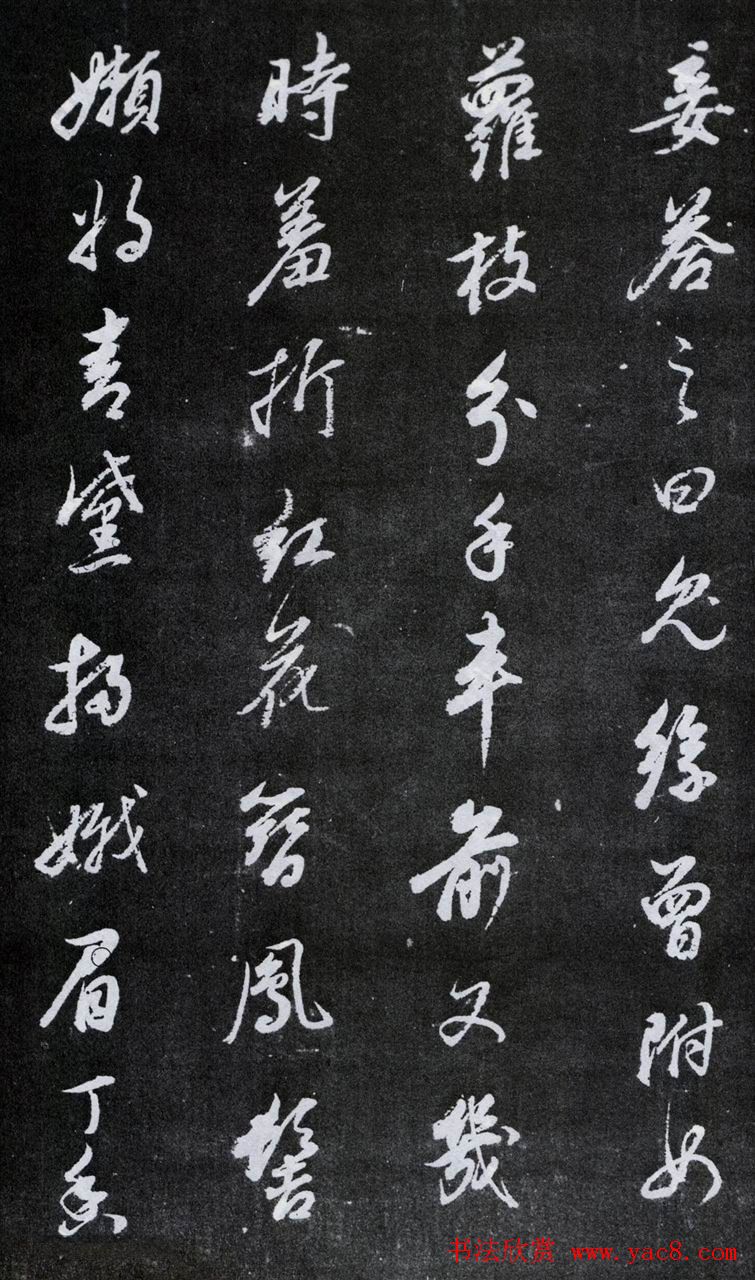 妾荅之曰兔絲曾附女
蘿枝分手車前又幾
時羞折紅花簪鳳髻
嬾將青黛掃娥眉丁香
书法欣赏 www.yac8.com